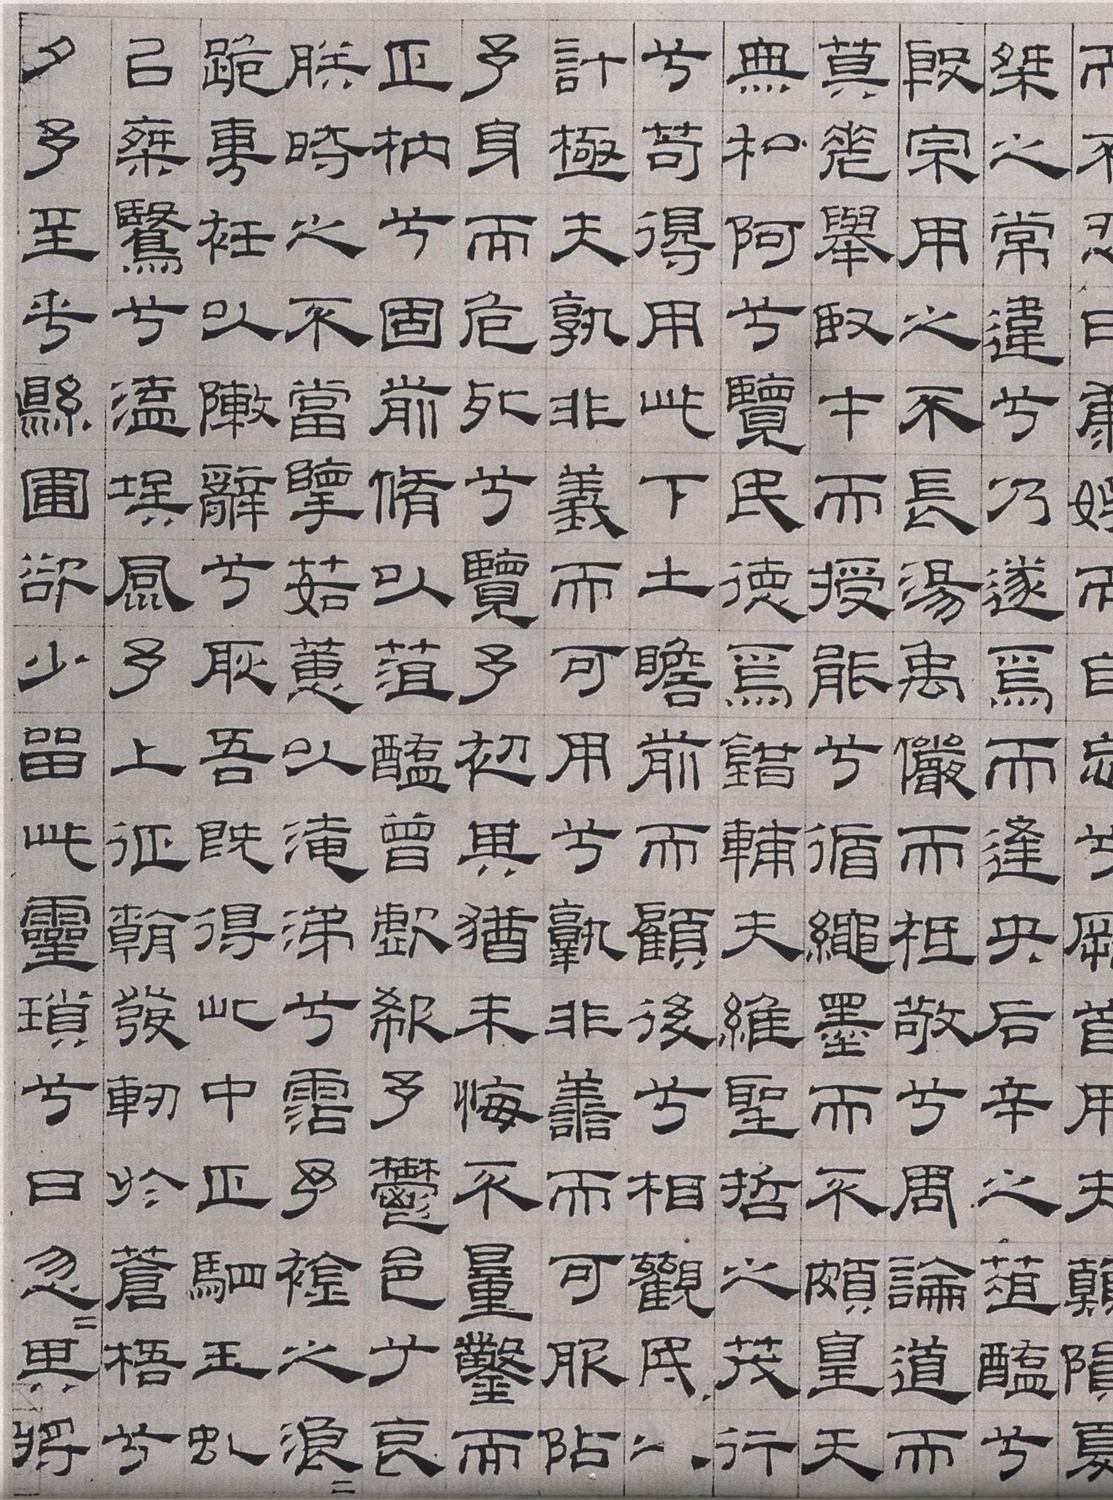 而不忍日康娛而自忘兮厥首用夫顛隕夏
桀之常違兮乃遂焉而逢央后辛之菹醢兮
殷宗用之不長湯禹儼而祗敬兮周論道而
莫差舉臤才而授能兮循繩墨而不頗皇天
無私阿兮覽民德焉錯輔夫維聖哲之茂行
兮苟得用此下土瞻前而顧後兮相觀民之
計極夫孰非義而可用兮孰非善而可服阽
予身而危死兮覽予初其猶未悔不量鑿而
正枘兮固前脩以菹醢曾歔欷予鬱邑兮哀
朕時之不當擥茹蕙以淹涕兮霑予襟之浪=
跪專衽以陳辭兮耿吾既得此中正駟玉虬
㠯椉鷖兮溘埃風予上征朝發軔於蒼梧兮
夕予至乎縣圃欲少留此靈瑣兮日忽=其將